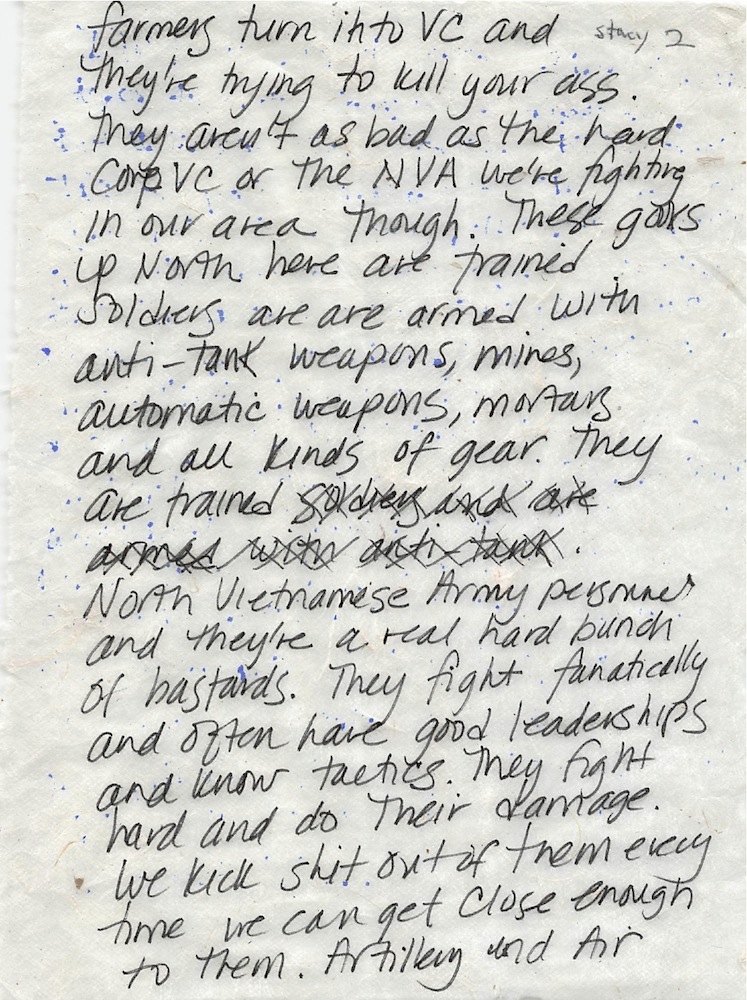 farmers turn into VC and stacy 2
they're trying to kill your ass.
They aren't as bad as the hard
Corp VC or the NVA we're fighting
in our area though. These gooks
up North here are trained
soldiers are are armed with
anti-tank weapons, mines,
automatic weapons, mortars
and all kinds of gear. They
are trained soldiers and are
armed with anti-tank.
North Vietnamese Army personnel
and they're a real hard bunch
of bastards. They fight fanatically
and often have good leaderships
and know tactics. They fight
hard and do their damage.
We kick shit out of them every
time we can get close enough
to them. Artillery and Air